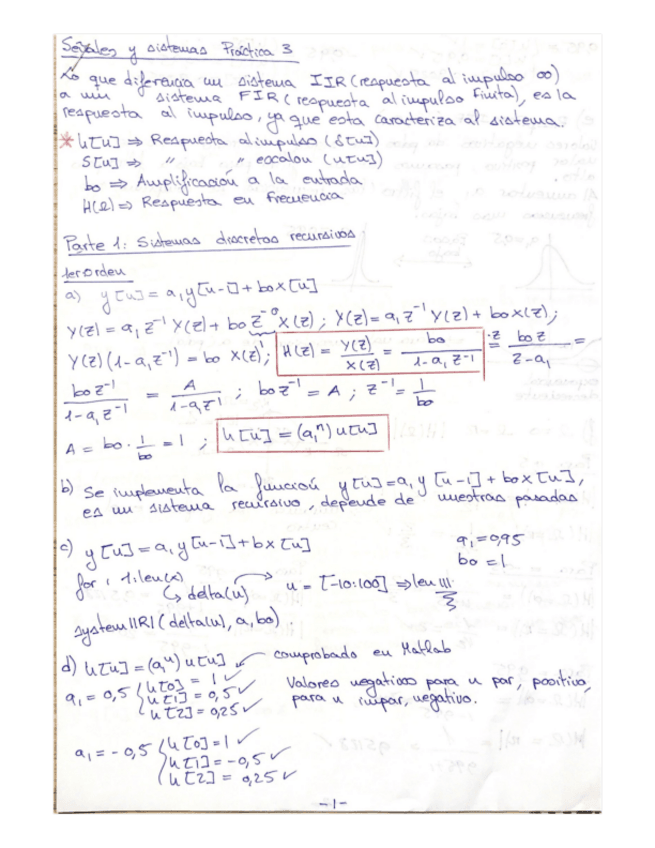 Señales y sistemas Práctica 3
Lo que diferencia un sistema IIR (respuesta al impulso ∞)
a un sistema FIR (respuesta al impulso finita), es la
respuesta al impulso, ya que esta caracteriza al sistema.
* h[n] ⇒ Respuesta al impulso (δ[n])
S[n] ⇒ " " escalón (u[n])
bo ⇒ Amplificación a la entrada
H(Ω) ⇒ Respuesta en frecuencia
Parte 1: Sistemas discretos recursivos
1er Orden
a) y[n] = a₁y[n-1] + box[n]
Y(z) = a₁ z⁻¹ Y(z) + bo z⁻⁰ X(z) ; Y(z) = a₁ z⁻¹ Y(z) + bo X(z);
Y(z)(1-a₁z⁻¹) = bo X(z); H(z) = Y(z)/X(z) = bo/(1-a₁z⁻¹) =^{·z} boz/(z-a₁) =
boz⁻¹/(1-a₁z⁻¹) = A/(1-a₁z⁻¹) ; boz⁻¹ = A ; z⁻¹ = 1/bo
A = bo · 1/bo = 1 ; h[n] = (a₁ⁿ) u[n]
b) Se implementa la función y[n] = a₁ y[n-1] + box[n],
es un sistema recursivo, depende de muestras pasadas
c) y[n] = a₁y[n-1] + bx[n] a₁ = 0,95
bo = 1
for i 1:len(x)
↳ delta(n) n = [-10:100] ⇒ len 111
systemIIR1(delta(n), a, bo)
d) h[n] = (a₁ⁿ) u[n] ↙ comprobado en Matlab
a₁ = 0,5 h[0] = 1 ✓
h[1] = 0,5 ✓
h[2] = 0,25 ✓
Valores negativos para n par, positivo,
para n impar, negativo.
a₁ = -0,5 h[0] = 1 ✓
h[1] = -0,5 ✓
h[2] = 0,25 ✓
-1-